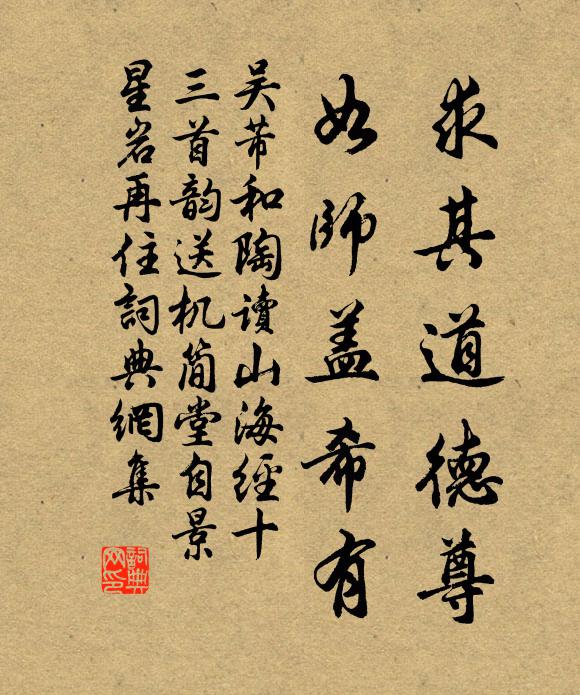 求其道德尊
如師蓋希有
吴芾和陶讀山海經十
三首韵送机简堂自景
星岩再住詞典網集
詞典网印